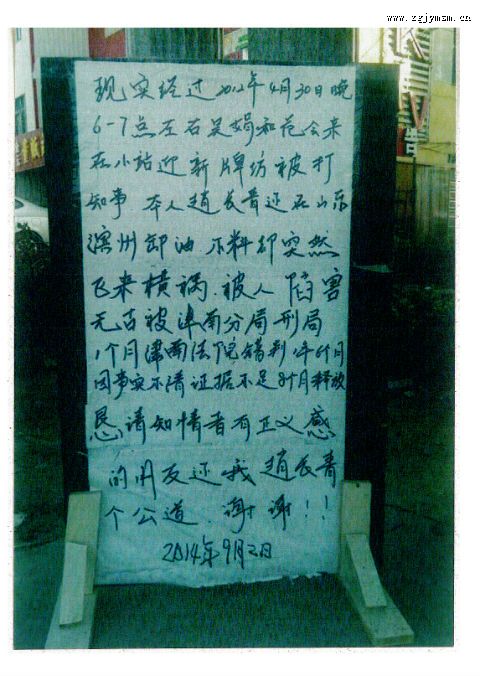 www.zgjymzm.cn
现实经过2012年4月30日晚
6-7点左右吴娟和范会来
在小站迎新牌坊被打
知事 本人趙长青还在山东
滨州卸油 不料却突然
飞来横祸.被人陷害
无古被津南分局刑局
1个月津南法院错判1年6个月
因事实不清证据不足8个月释放
恳请知情者有正义感
的朋友还我趙长青
个公道.谢谢!!
2014年9月2日
K
V
告